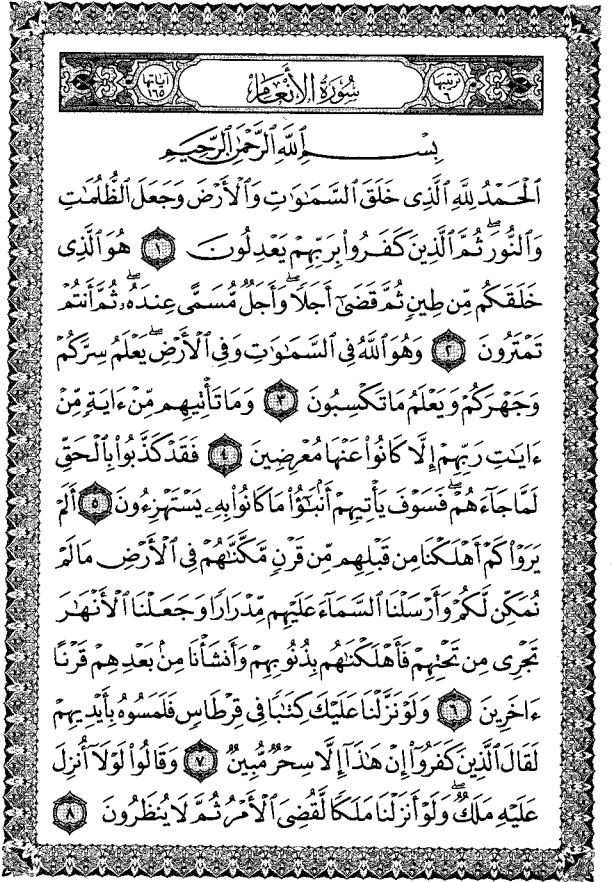 ترتيبها ٦
سُورَةُ الْأَنْعَامِ
آياتها ١٦٥
بِسْمِ ٱللَّهِ ٱلرَّحْمَٰنِ ٱلرَّحِيمِ
ٱلْحَمْدُ لِلَّهِ ٱلَّذِى خَلَقَ ٱلسَّمَٰوَٰتِ وَٱلْأَرْضَ وَجَعَلَ ٱلظُّلُمَٰتِ
وَٱلنُّورَ ۖ ثُمَّ ٱلَّذِينَ كَفَرُوا۟ بِرَبِّهِمْ يَعْدِلُونَ ١ هُوَ ٱلَّذِى
خَلَقَكُم مِّن طِينٍ ثُمَّ قَضَىٰٓ أَجَلًا ۖ وَأَجَلٌ مُّسَمًّى عِندَهُۥ ۖ ثُمَّ أَنتُمْ
تَمْتَرُونَ ٢ وَهُوَ ٱللَّهُ فِى ٱلسَّمَٰوَٰتِ وَفِى ٱلْأَرْضِ ۖ يَعْلَمُ سِرَّكُمْ
وَجَهْرَكُمْ وَيَعْلَمُ مَا تَكْسِبُونَ ٣ وَمَا تَأْتِيهِم مِّنْ ءَايَةٍ مِّنْ
ءَايَٰتِ رَبِّهِمْ إِلَّا كَانُوا۟ عَنْهَا مُعْرِضِينَ ٤ فَقَدْ كَذَّبُوا۟ بِٱلْحَقِّ
لَمَّا جَآءَهُمْ ۖ فَسَوْفَ يَأْتِيهِمْ أَنۢبَٰٓؤُا۟ مَا كَانُوا۟ بِهِۦ يَسْتَهْزِءُونَ ٥ أَلَمْ
يَرَوْا۟ كَمْ أَهْلَكْنَا مِن قَبْلِهِم مِّن قَرْنٍ مَّكَّنَّٰهُمْ فِى ٱلْأَرْضِ مَا لَمْ
نُمَكِّن لَّكُمْ وَأَرْسَلْنَا ٱلسَّمَآءَ عَلَيْهِم مِّدْرَارًا وَجَعَلْنَا ٱلْأَنْهَٰرَ
تَجْرِى مِن تَحْتِهِمْ فَأَهْلَكْنَٰهُم بِذُنُوبِهِمْ وَأَنشَأْنَا مِنۢ بَعْدِهِمْ قَرْنًا
ءَاخَرِينَ ٦ وَلَوْ نَزَّلْنَا عَلَيْكَ كِتَٰبًا فِى قِرْطَاسٍ فَلَمَسُوهُ بِأَيْدِيهِمْ
لَقَالَ ٱلَّذِينَ كَفَرُوٓا۟ إِنْ هَٰذَآ إِلَّا سِحْرٌ مُّبِينٌ ٧ وَقَالُوا۟ لَوْلَآ أُنزِلَ
عَلَيْهِ مَلَكٌ ۖ وَلَوْ أَنزَلْنَا مَلَكًا لَّقُضِىَ ٱلْأَمْرُ ثُمَّ لَا يُنظَرُونَ ٨